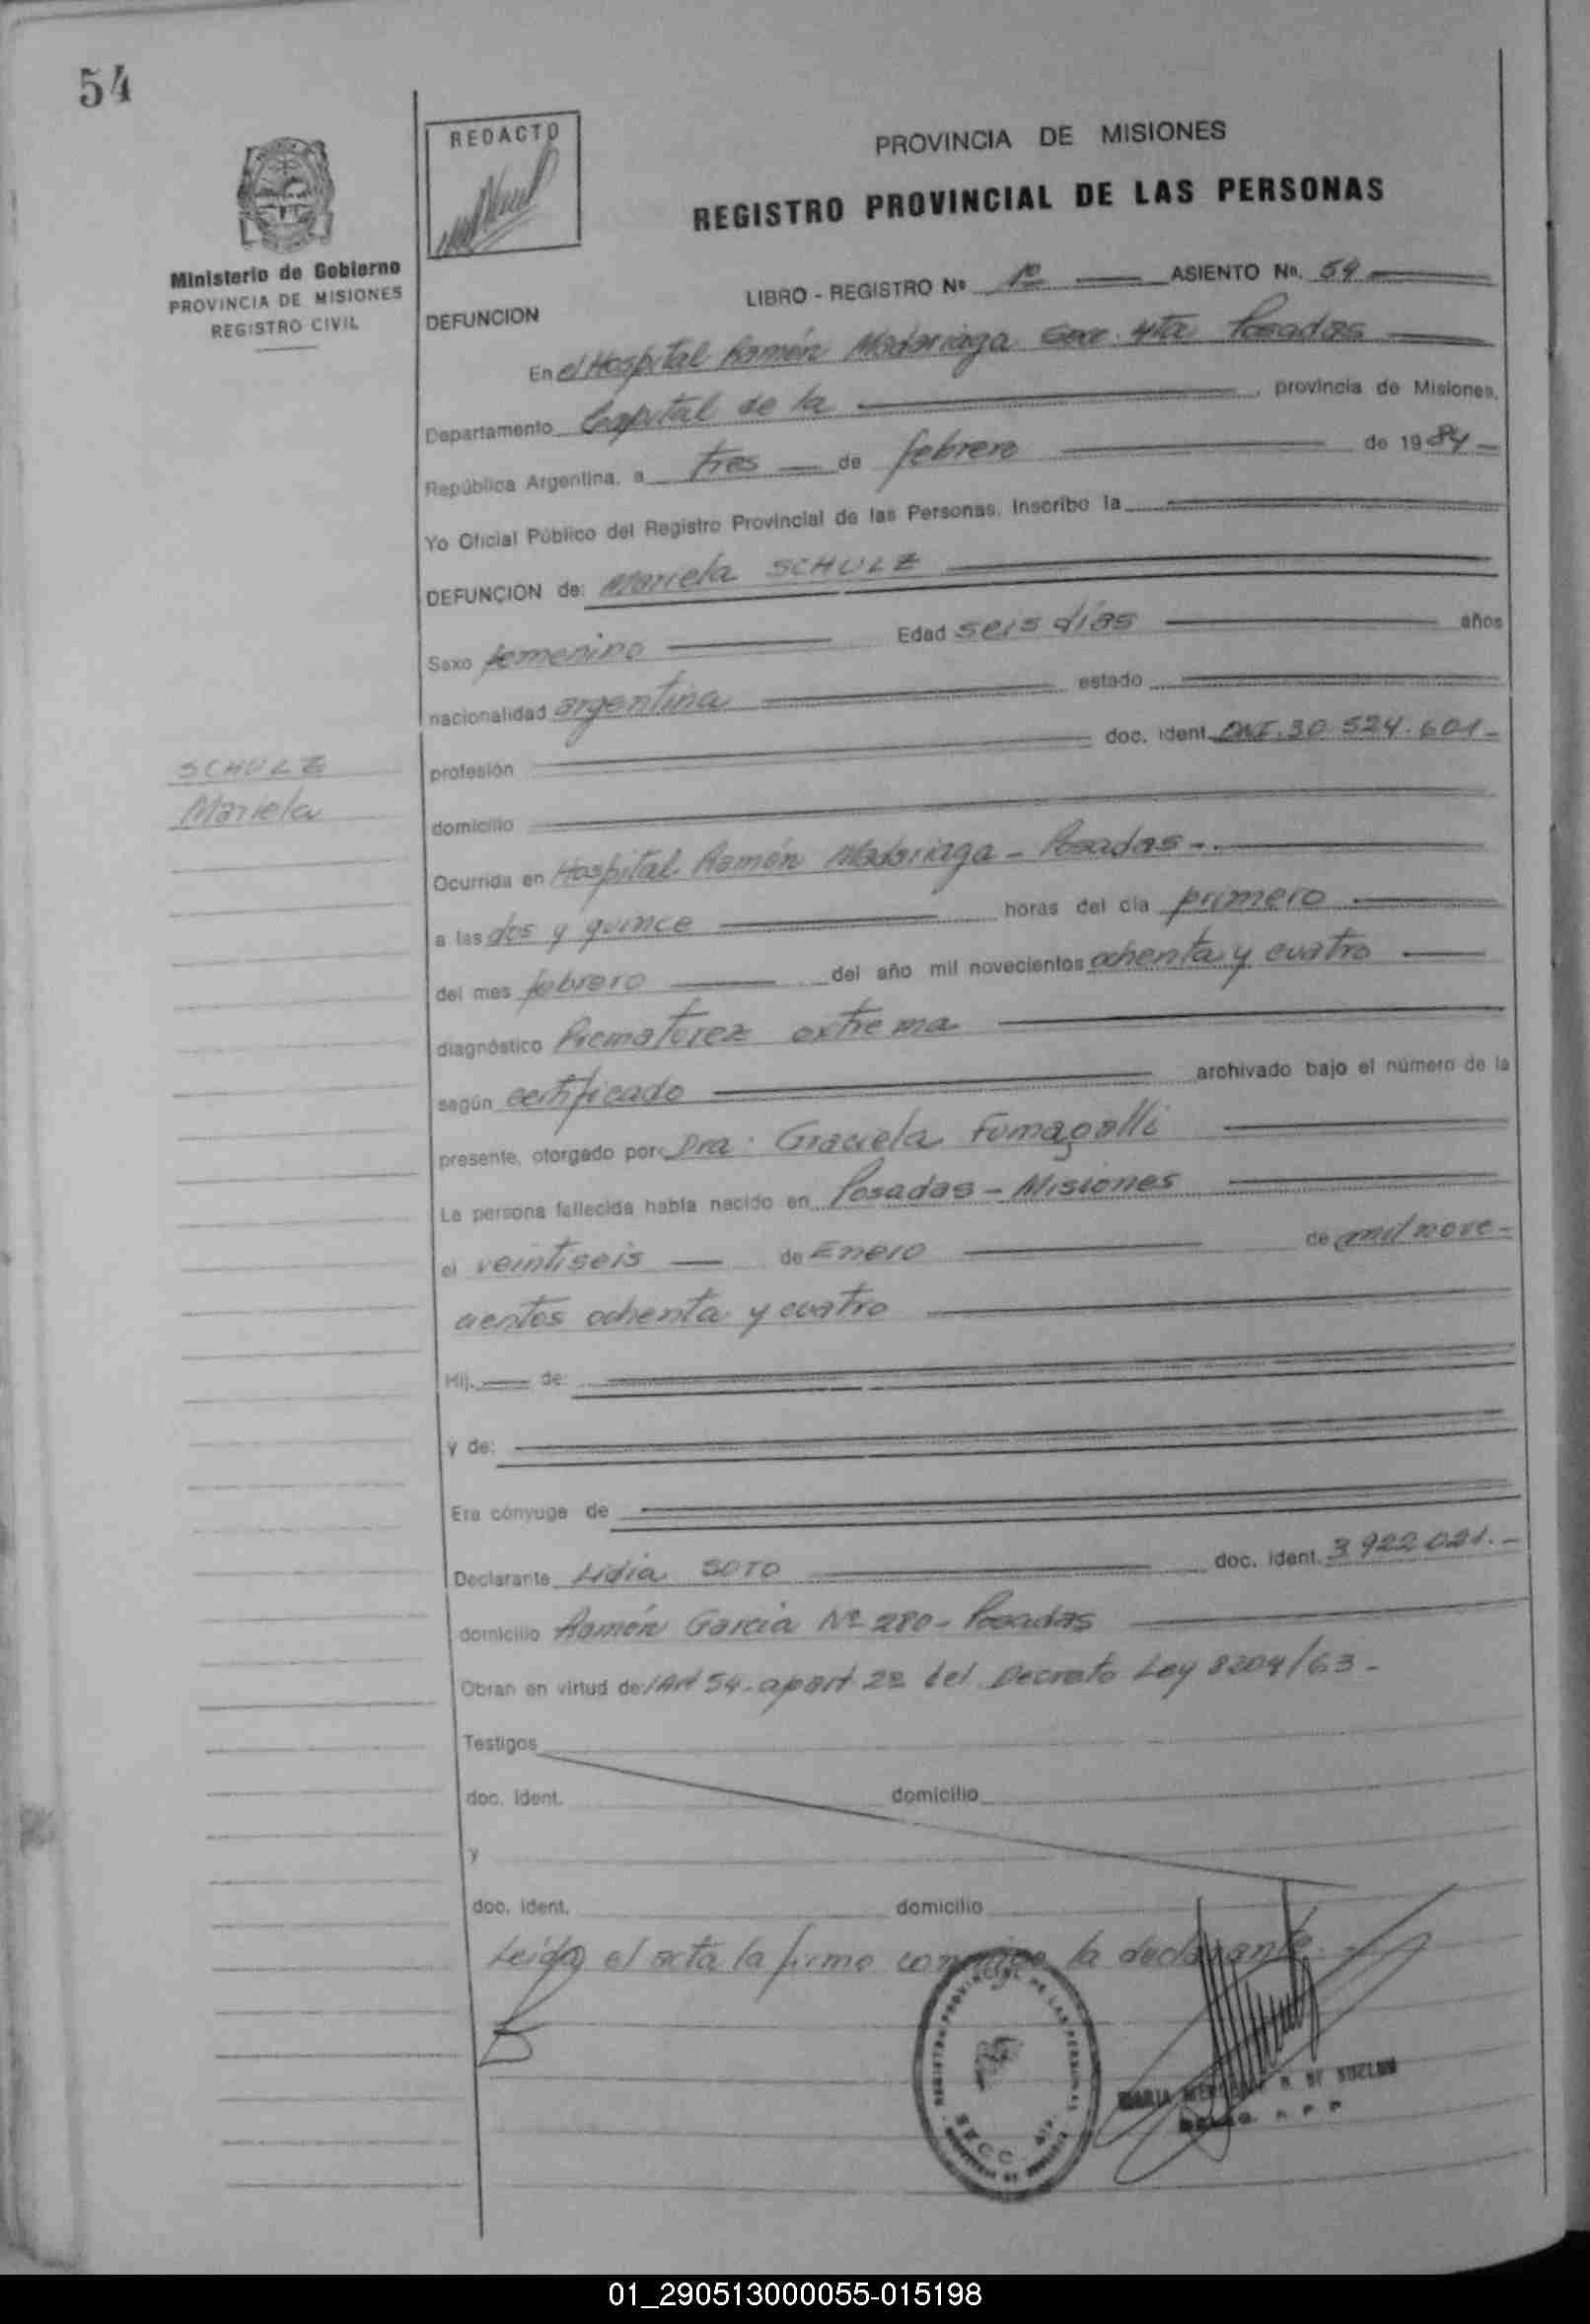 54
REDACTO
PROVINCIA DE MISIONES
REGISTRO PROVINCIAL DE LAS PERSONAS
Ministerio de Gobierno
PROVINCIA DE MISIONES
REGISTRO CIVIL
LIBRO - REGISTRO Nº 1º ASIENTO Nº. 54
DEFUNCION
En el Hospital Ramón Madariaga Secc. 4ta Posadas
Departamento Capital de la , provincia de Misiones,
República Argentina, a tres de febrero de 1984
Yo Oficial Público del Registro Provincial de las Personas, Inscribo la
DEFUNCION de: Mariela SCHULZ
Sexo femenino Edad seis días años
nacionalidad argentina estado
SCHULZ
Mariela
profesión doc. ident. DNI. 30.524.601-
domicilio
Ocurrida en Hospital Ramón Madariaga - Posadas -.
a las dos y quince horas del día primero
del mes febrero del año mil novecientos ochenta y cuatro
diagnóstico Prematurez extrema
según certificado archivado bajo el número de la
presente, otorgado por: Dra: Graciela Fumagalli
La persona fallecida había nacido en Posadas - Misiones
el veintiseis de Enero de mil nove-
cientos ochenta y cuatro
Hij. de:
y de:
Era cónyuge de
Declarante Lidia SOTO doc. ident. 3922021.-
domicilio Ramón Garcia Nº 280 - Posadas
Obran en virtud del Art 54- apart 2º del Decreto Ley 8204/63-
Testigos
doc. ident. domicilio
y
doc. ident. domicilio
Leida el acta la firma conmigo la declarante.-
REGISTRO PROVINCIAL DE LAS PERSONAS
SECC. 4ta
MARIA
01_290513000055-015198